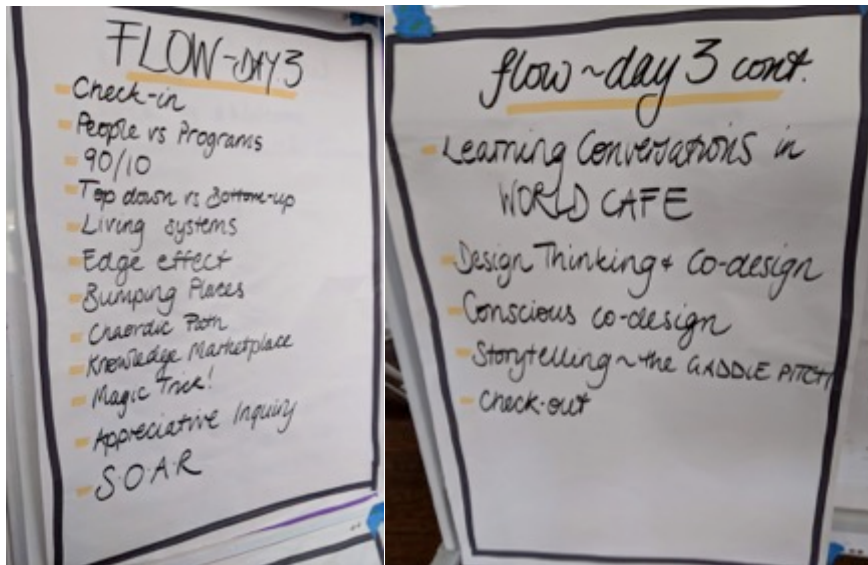 FLOW~DAY 3
Check-in
People vs Programs
90/10
Top down vs Bottom-up
Living systems
Edge effect
Bumping Places
Chaordic Path
Knowledge Marketplace
Magic Trick!
Appreciative Inquiry
S.O.A.R
flow~day 3 cont.
Learning Conversations in
WORLD CAFE
Design Thinking + Co-design
Conscious co-design
Storytelling~the GADDIE PITCH
Check-out